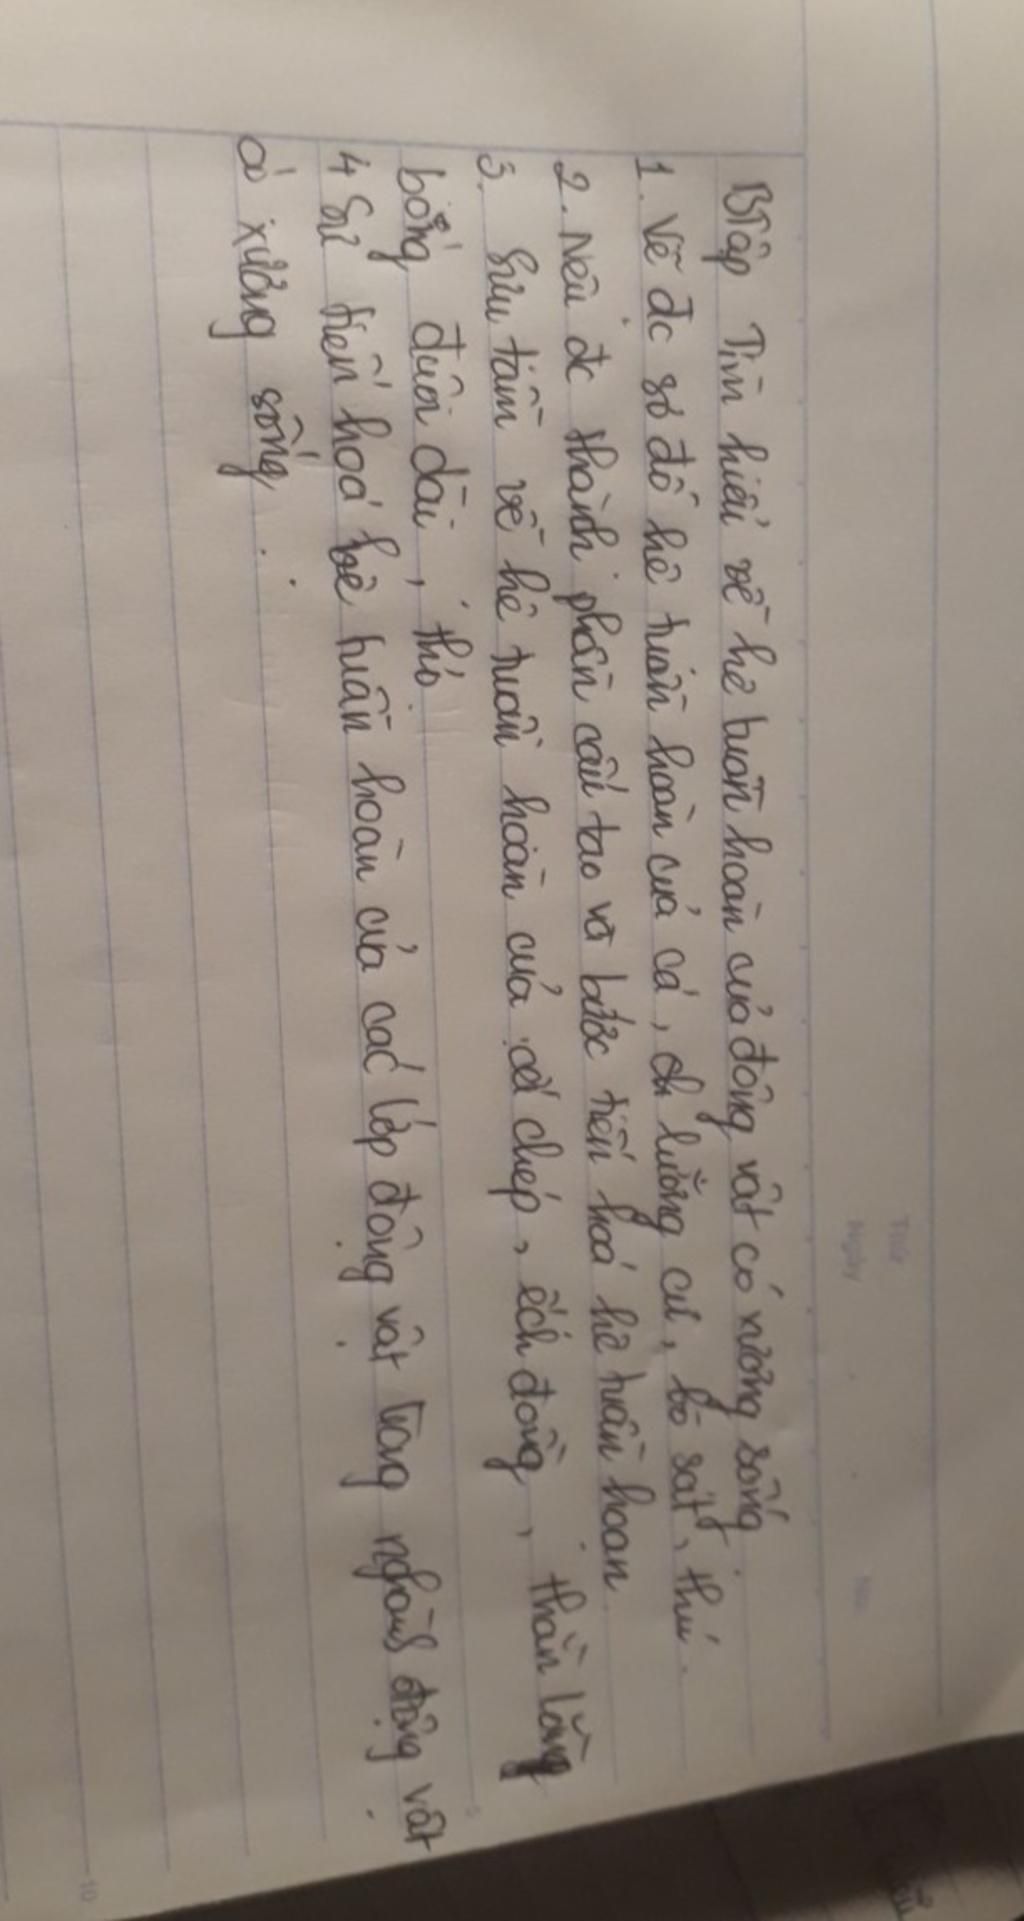 BTập Tìm hiểu về hệ tuần hoàn của động vật có xương sống
1. Vẽ đc sơ đồ hệ tuần hoàn của cá, lưỡng cư, bò sát, thú.
2. Nêu đc thành phần cấu tạo và bước tiến hoá hệ tuần hoàn
3. Sưu tầm về hệ tuần hoàn của cá chép, ếch đồng, thằn lằn
bóng đuôi dài, thỏ
4 Sự tiến hoá hệ tuần hoàn của các lớp động vật trong ngành động vật
có xương sống.
Thứ
Ngày
No.
5
10